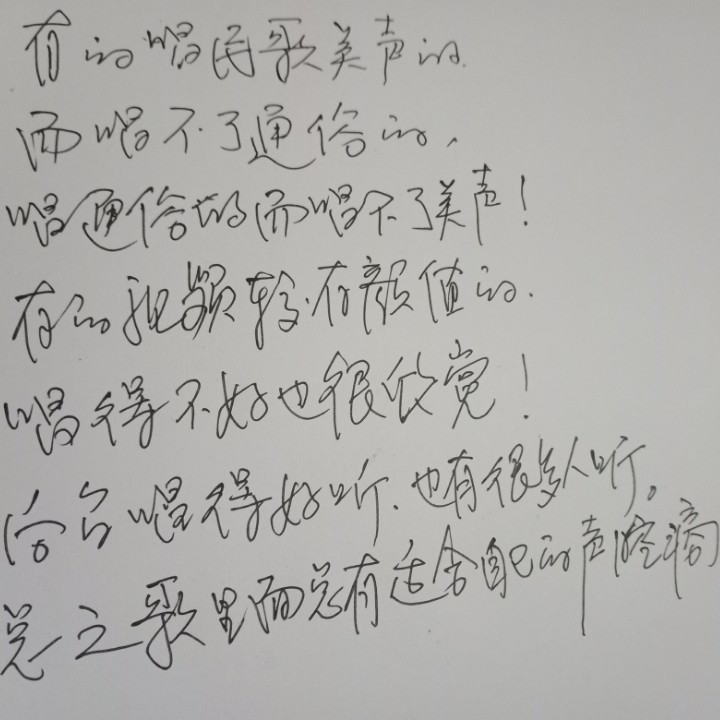 有的唱民歌美声的
而唱不了通俗的,
唱通俗的而唱不了美声!
有的视频较有颜值的.
唱得不好也很欣赏!
后台唱得好听.也有很多人听。
总之歌里面总有适合自己的声腔